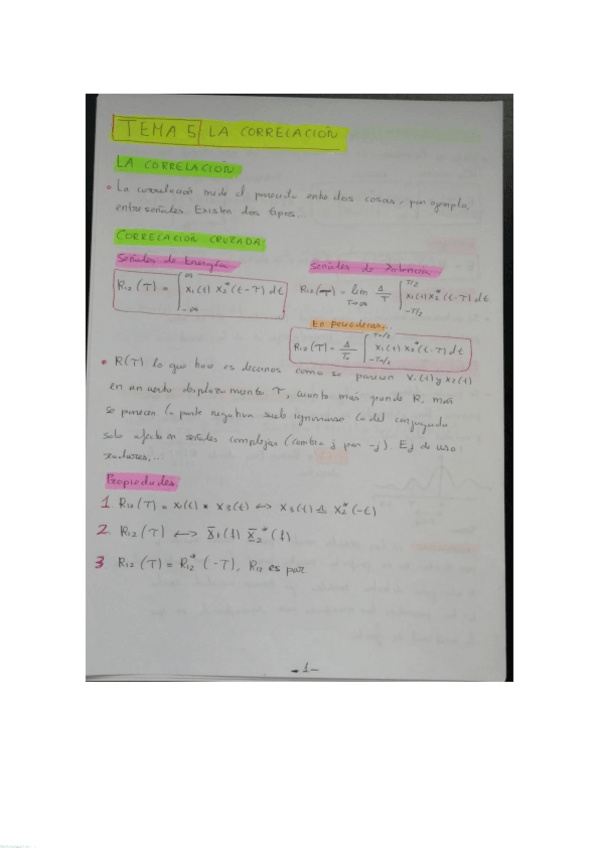 TEMA 5 LA CORRELACIÓN
LA CORRELACIÓN
• La correlación mide el parecido entre dos cosas, por ejemplo,
entre señales. Existen dos tipos...
CORRELACIÓN CRUZADA:
Señales de Energía
Señales de Potencia
R₁₂(T) = ∫_{-∞}^{∞} x₁(t) x₂*(t-T) dt
R₁₂(T) = lim_{T→∞} 1/T ∫_{-T/2}^{T/2} x₁(t) x₂*(t-T) dt
En periódicas...
R₁₂(T) = 1/T₀ ∫_{-T₀/2}^{T₀/2} x₁(t) x₂*(t-T) dt
• R(T) lo que hace es decirnos como se parecen x₁(t) y x₂(t)
en un cierto desplazamiento T, cuanto más grande R, más
se parecen la parte negativa suele ignorarse la del conjugado
solo afecta en señales complejas (cambia j por -j). Ej de uso:
radares,...
Propiedades
1 R₁₂(T) = x₁(t) * x₃(t) ↔ x₃(t) ≜ x₂*(-t)
2 R₁₂(T) ↔ X₁(f) X₂*(f)
3 R₁₂(T) = R₁₂*(-T), R₁₂ es par
-1-